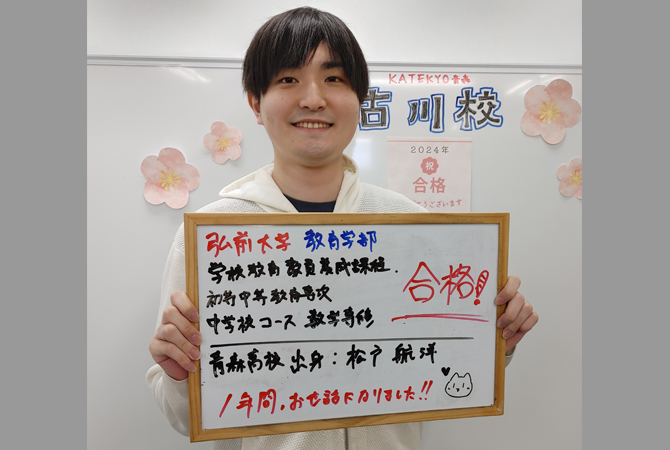 KATEKYO青森
古川校
2024年
祝
合格
うございます
弘前大学 教育学部
学校教育教員養成課程.
初等中等教育専攻
中学校コース 数学専修
合格!
青森高校 出身:松戸 航洋
1年間、お世話になりました!!